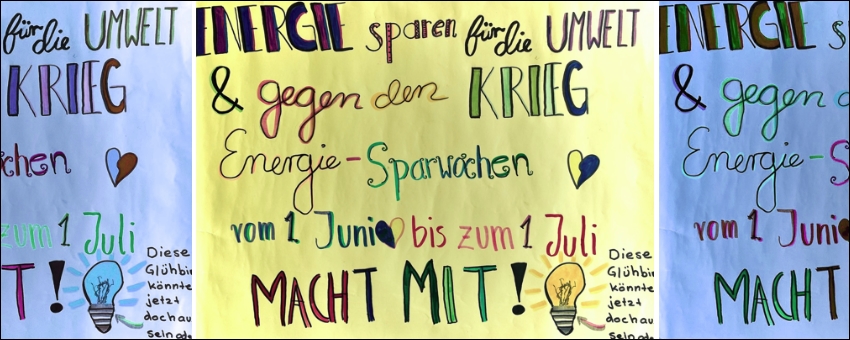 für die UMWELT
KRIEG
chen
zum 1 Juli
T!
Diese
Glühbi
könnte
jetzt
doch au
ENERGIE sparen für die UMWELT
& gegen den KRIEG
Energie-Sparwochen
vom 1 Juni bis zum 1 Juli
MACHT MIT!
Diese
Glühbi
könnte
jetzt
doch au
ENERGIE s
& gegen d
Energie-S
vom 1 Juni
MACHT